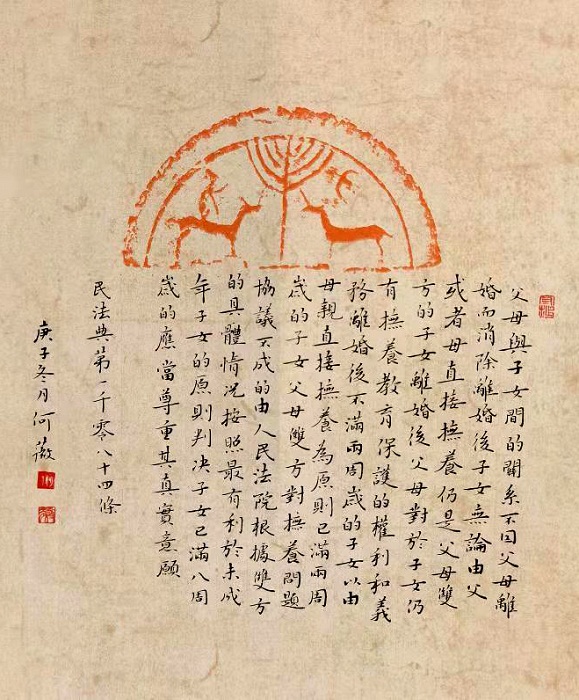 父母與子女間的關系不因父母離
婚而消除離婚後子女無論由父
或者母直接撫養仍是父母雙
方的子女離婚後父母對於子女仍
有撫養教育保護的權利和義
務離婚後不滿兩周歲的子女以由
母親直接撫養為原則已滿兩周
歲的子女父母雙方對撫養問題
協議不成的由人民法院根據雙方
的具體情況按照最有利於未成
年子女的原則判決子女已滿八周
歲的應當尊重其真實意願
民法典第一千零八十四條
庚子冬月何薇